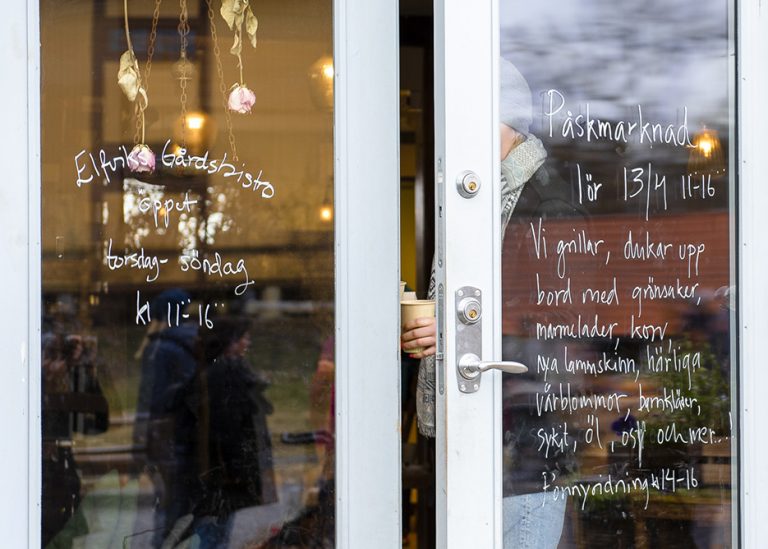 Elfviks Gårdsbistro
öppet
torsdag - söndag
kl 11-16
Påskmarknad
lör 13/4 11-16
Vi grillar, dukar upp
bord med grönsaker,
marmelader, korv,
nya lammskinn, härliga
vårblommor, barnkläder,
sylt, öl, ost och mer...!
Ponnyridning kl 14-16